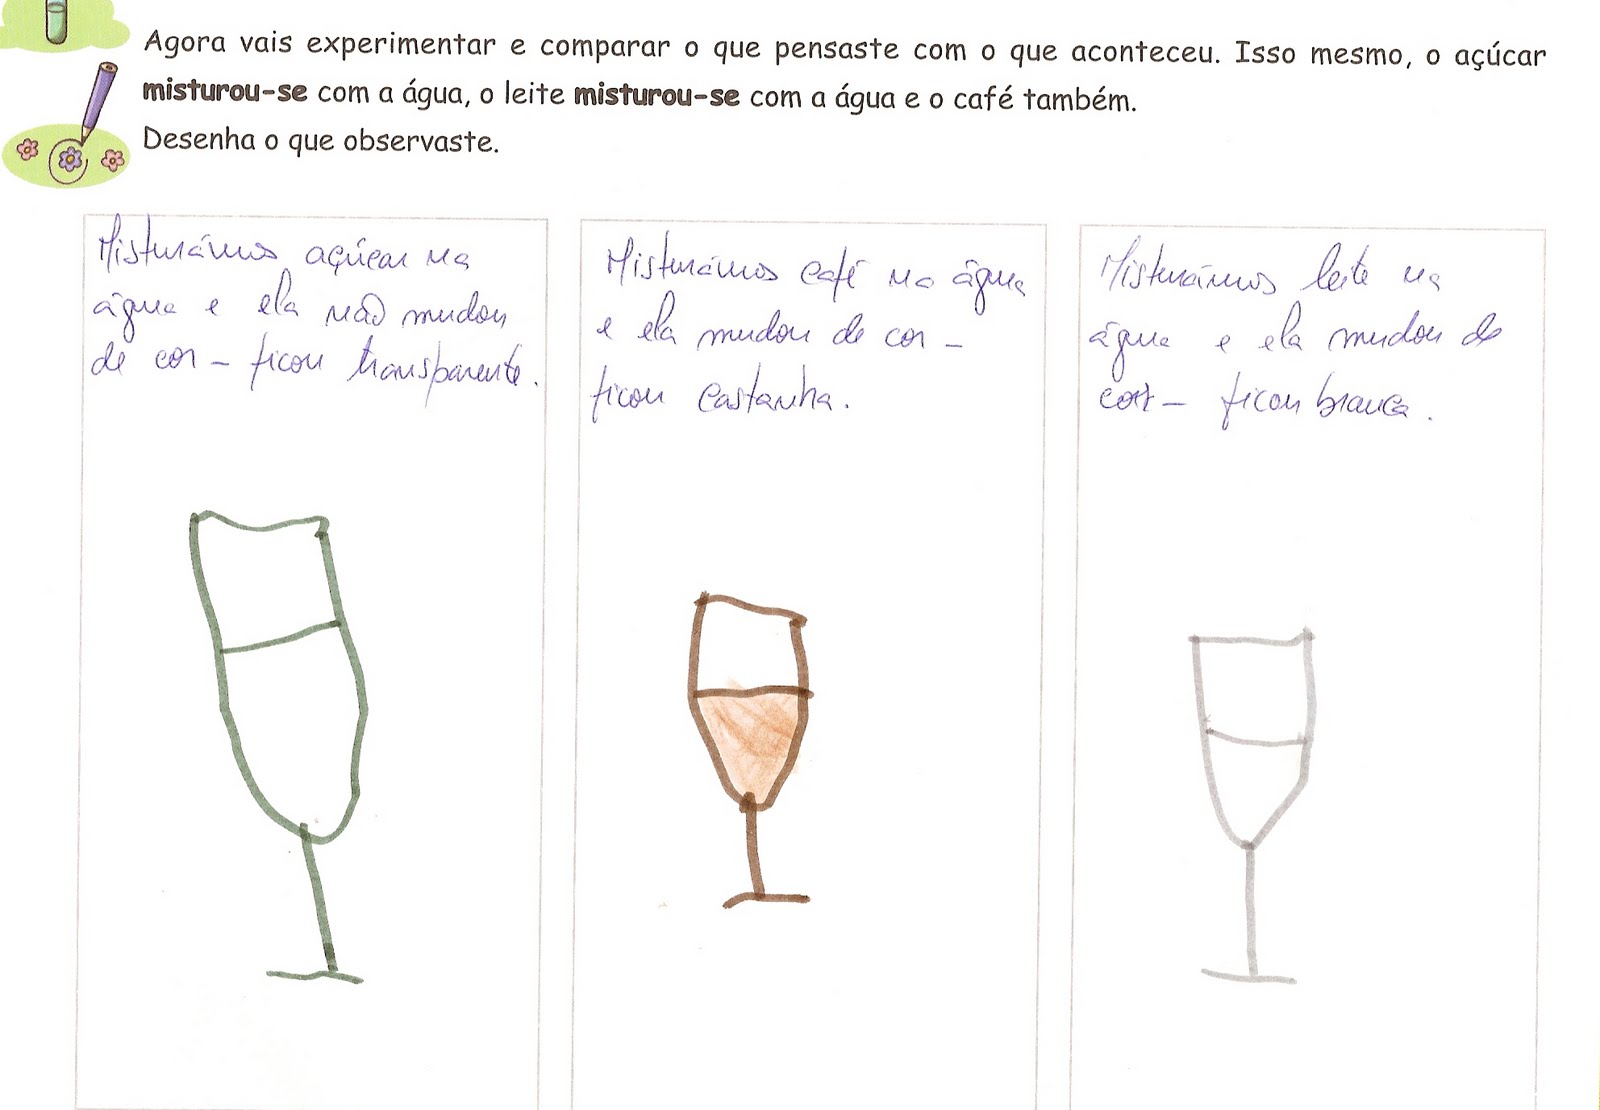 Agora vais experimentar e comparar o que pensaste com o que aconteceu. Isso mesmo, o açúcar
misturou-se com a água, o leite misturou-se com a água e o café também.
Desenha o que observaste.
Misturámos açúcar na
água e ela não mudou
de cor - ficou transparente.
Misturámos café na água
e ela mudou de cor -
ficou castanha.
Misturámos leite na
água e ela mudou de
cor - ficou branca.